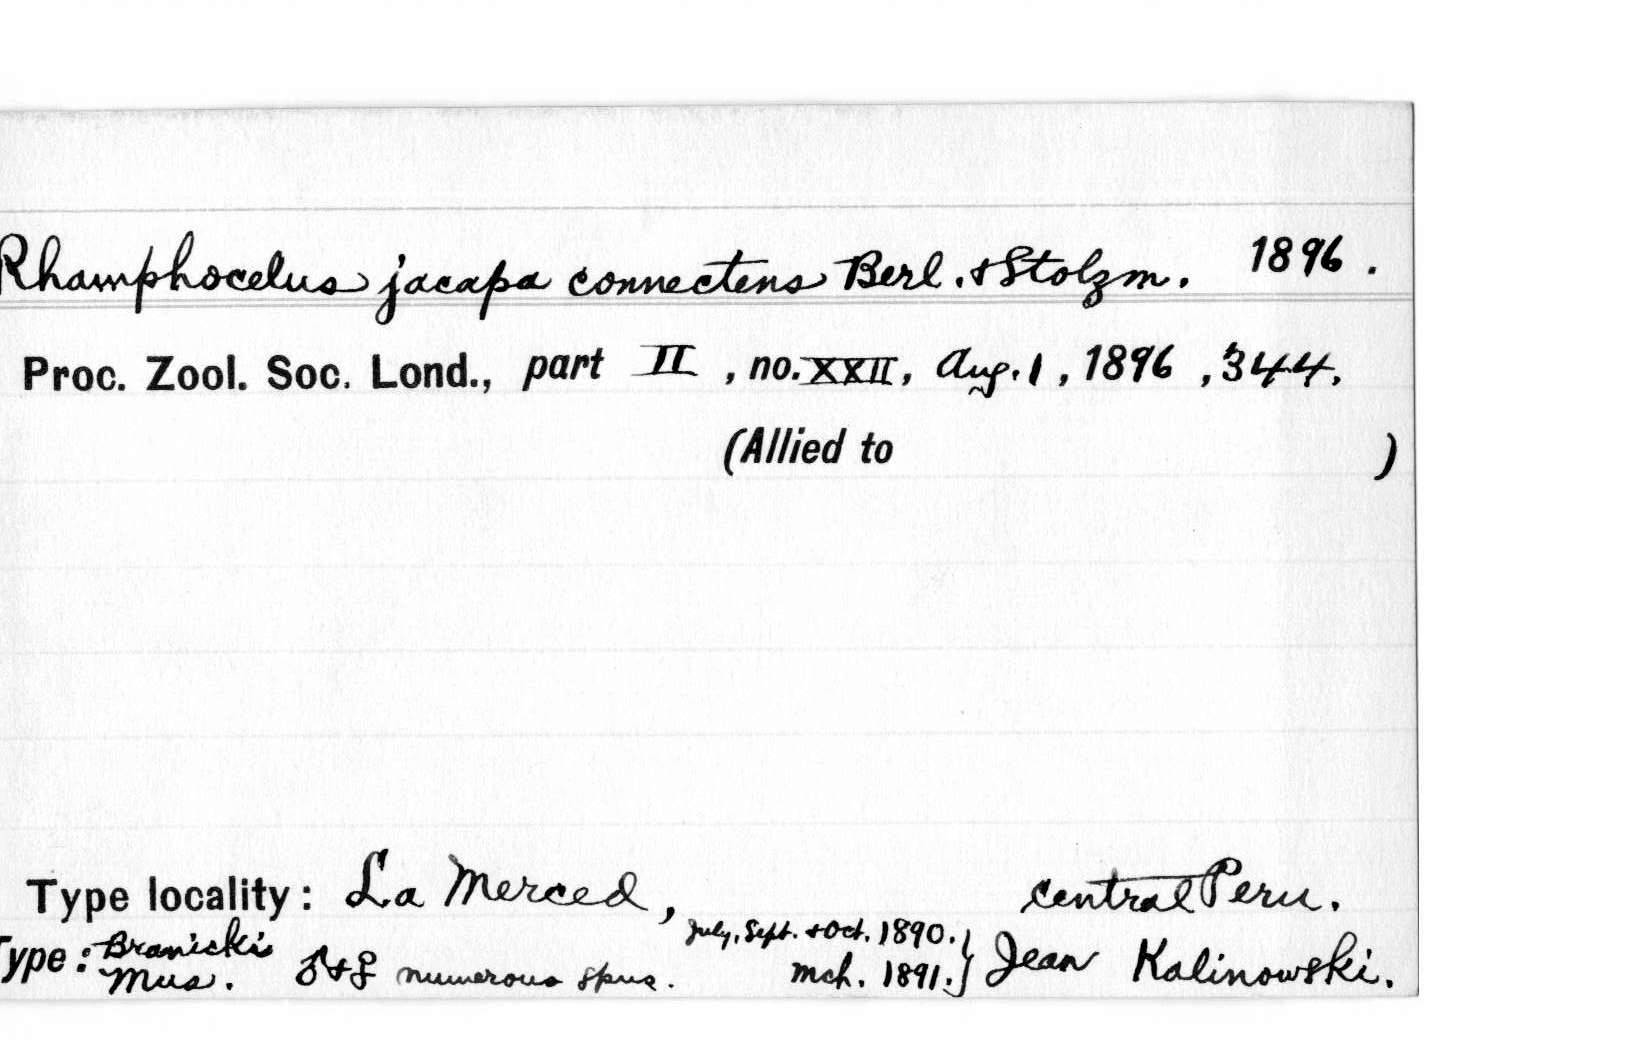 Rhamphocelus jacapa connectens Berl. & Stolzm. 1896.
Proc. Zool. Soc. Lond., part II, no. XXII, Aug. 1, 1896, 344.
(Allied to )
Type locality: La Merced, central Peru.
July, Sept. & Oct. 1890.}
Type: Branicki Mus. ♂ & ♀ numerous spns. Mch. 1891.} Jean Kalinowski.